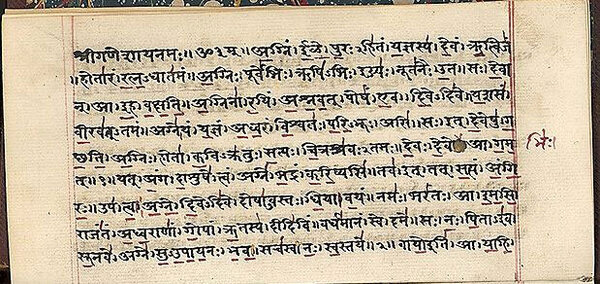 श्रीगणेशायनमः॥ॐ३म्॥अ॒ग्निं।ई॒ळे॒।पु॒रः२हि॑तं।य॒ज्ञस्य॑।दे॒वं।ऋ॒त्विजं॑
॥होता॑रं।र॒त्न॒२धात॑मं॥अ॒ग्निः।पूर्वे॑भिः।ऋषि॑२भिः।ईड्यः॑।नूत॑नैः।उ॒त॥सः।दे॒वा
न्।आ।इ॒ह।व॒क्ष॒ति॒॥अ॒ग्निना॑।र॒यिं।अ॒श्न॒व॒त्।पोषं॑।ए॒व।दि॒वे२दि॑वे॥य॒शसं॑
वी॒रव॑त्२तमं॥अग्ने॑।यं।य॒ज्ञं।अ॒ध्व॒रं।वि॒श्वतः॑।प॒रि॒२भूः।असि॑॥सः।इत्।दे॒वेषु॑।ग॒
च्छ॒ति॒॥अ॒ग्निः।होता॑।क॒वि२क्र॑तुः।स॒त्यः।चि॒त्रश्र॑वः२तमः॥दे॒वः।दे॒वे।आ।ग॒म॒
भिः।
त्॥१॥यत्।अं॒ग।दा॒शुषे॑।त्वं।अग्ने॑।भ॒द्रं।क॒रि॒ष्यसि॑॥तव॑।इत्।तत्।स॒त्यं।अं॒गि॒
रः॒॥उप॑।त्वा॒।अ॒ग्ने॒।दि॒वे२दि॑वे।दोषा॑२वस्तः।धि॒या।व॒यं॥नमः॑।भरं॑तः।आ।इ॒म॒सि॒॥
राजं॑तं।अ॒ध्व॒राणां॑।गो॒पां।ऋ॒तस्य॑।दीदि॑विं॥वर्ध॑मानं।स्वे।दमे॑॥सः।नः॒।पि॒ता२इ॑व।
सू॒नवे॑।अग्ने॑।सु॒२उ॒पा॒य॒नः।भ॒व॒॥सच॑स्व।नः॒।स्व॒स्तये॑॥२॥वायो॒इति॑।आ।या॒हि॒